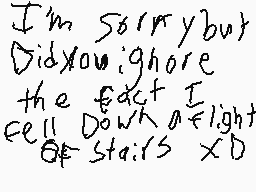 I'm sorry but
Did you ignore
the fact I
fell Down a flight
OF stairs XD